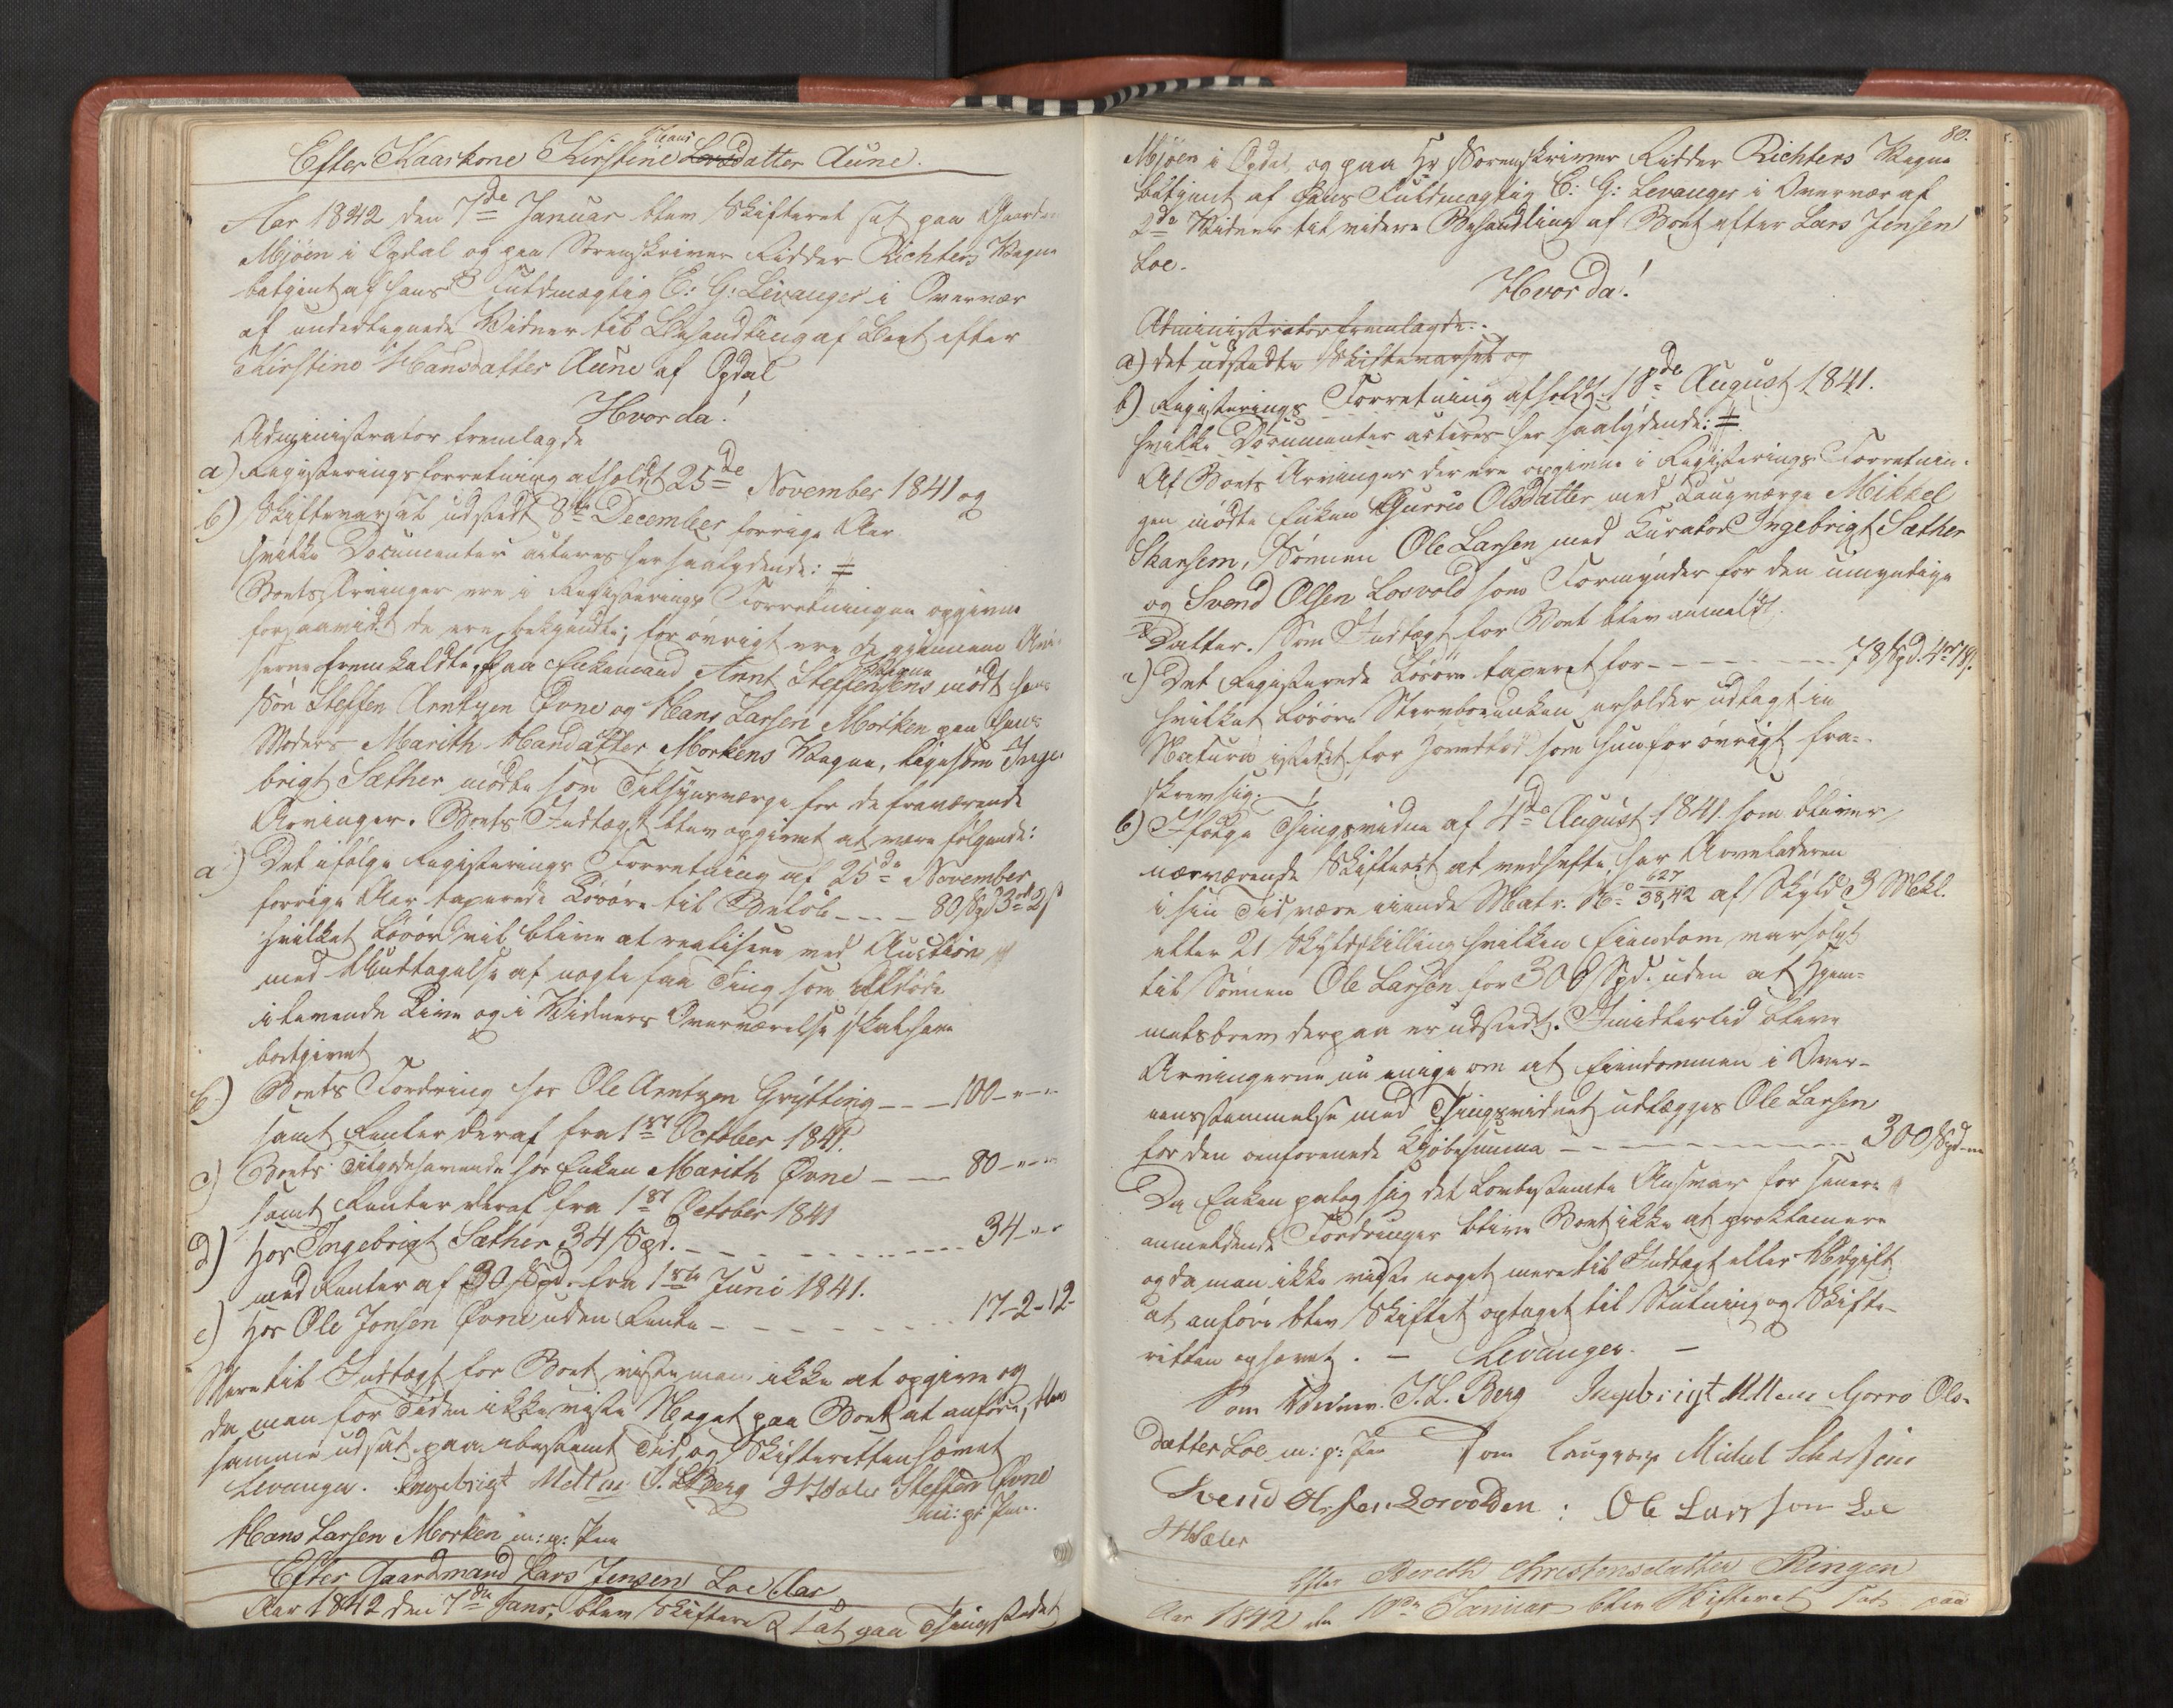 Efter Kaarkone Kirstine Hans Larsdatter Aune.
Aar 1842 den 7de Januar blev Skifteret sat paa Gaarden
Mjöen i Opdal og paa Sorenskriver Ridder Richters Vegne
betjent af hans Fuldmægtig C: G: Levanger i Overvær
af undertegnede Vidner til Behandling af Boet efter
Kirstine Hansdatter Aune af Opdal
Hvor da!
Administrator fremlagde
a) Registeringsforretning afholdt 25de November 1841 og
b) Skiftevarsel udstedt 8de December forrige Aar.
hvilke Documenter acteres her saalydende:
Boets Arvinger ere i Registerings Forretningen opgivne
forsaavidt de ere bekjendte; for øvrigt ere de gjennem Avi-
serne fremkaldte. Paa Enkemand Arnt Steffensens Vegne mødte hans
Søn Steffen Arntzen Øvne og Hans Larsen Morken paa hans
Moders Marith Hansdatter Morkens Vegne, ligesom Inge-
brigt Sæther mødte som Tilsynsværge for de fraværende
Arvinger. Boets Indtægt blev opgivet at være følgende:
a) Det ifølge Registerings Forretning af 25de November
forrige Aar taxerede Løsøre til Beløb - - - 80 Spd 3 ort 2 s
hvilket Løsøre vil blive at realisere ved Auction
med Undtagelse af nogle faa Ting som Afdøde
i levende Live og i Vidners Overværelse skal have
bortgivet
b) Boets Fordring hos Ole Arntzen Grytting - - - 100 - " - "
samt Renter deraf fra 1ste October 1841.
c) Boets Tilgodehavende hos Enken Marith Øvne - - - 80 - " - "
samt Renter deraf fra 1ste October 1841
d) Hos Ingebrigt Sæther 34 Spd. - - - - - - 34 - " - "
med Renter af 30 Spd. fra 1ste Juni 1841.
e) Hos Ole Jonsen Øvne uden Rente - - - - - 17 - 2 - 12
Mere til Indtægt for Boet vidste man ikke at opgive og
da man for Tiden ikke vidste Noget paa Boet at anføre, blev
samme udsat paa ubestemt Tid og Skifteretten hævet
Levanger. Ingebrigt Mellem J. L. Berg Steffen Øvne
m: p: Pen.
Hans Larsen Morken m: p: Pen
Efter Gaardmand Lars Jensen Loe
Aar 1842 den 7de Janr. blev Skifteret sat paa Thingstedet
80.
Mjöen i Opdal og paa Hr Sorenskriver Ridder Richters Vegne
betjent af hans Fuldmægtig C: G: Levanger i Overvær af
2de Vidner til videre Behandling af Boet efter Lars Jensen
Loe.
Hvor da!
Administrator fremlagde.
a) det udstedte Skiftevarsel og
b) Registerings Forretning afholdt 18de August 1841.
hvilke Documenter acteres her saalydende:
Af Boets Arvinger der ere opgivne i Registerings Forretnin-
gen mødte Enken Gurrie Olsdatter med Laugværge Mikkel
Skarsem, Sönnen Ole Larsen med Curator Ingebrigt Sæther
og Svend Olsen Losvold som Formynder for den umyndige
Datter. Som Indtægt for Boet blev anmeldt.
a) Det Registerede Løsøre taxeret for - - - - - 78 Spd. 4 ort
hvilket Løsøre Stervboenken erholder udlagt in
Natura istedet for som hun for øvrigt fra-
skrev sig.
b) Ifølge Thingsvidne af 4de August 1841 som bliver
nærværende Skifteact at vedhefte, har Arveladeren
i sin Tid være eiende Matr. No 627/38,42 af Skyld 3 Mkl.
eller 21 Skyldskilling hvilken Eiendom var solgt
til Sönnen Ole Larsen for 300 Spd. uden at Hjem-
melsbrev derpaa er udstedt. Imidlertid bleve
Arvingerne nu enige om at Eiendommen i Over-
eensstemmelse med Thingsvidnet udlægges Ole Larsen
for den ovennævnte Kjøbesumma - - - - - 300 Spd - "
Da Enken paatog sig det lovbestemte Ansvar for senere
anmeldende Fordringer bliver Boet ikke at proklamere
og da man ikke vidste noget mere til Indtægt eller Udgift
at anføre blev Skiftet optaget til Slutning og Skifte-
retten ophævet. - Levanger. -
Som Vidner. J. L. Berg Ingebrigt Mellem Gorro Ols-
datter Loe m: p: Pen Som laugværge Mickel Skarsem
Svend Olsen Losvolden: Ole Larsson Loe
Efter Bereth Christensdatter Ringen
Aar 1842 den 10de Januar blev Skifteret sat paa